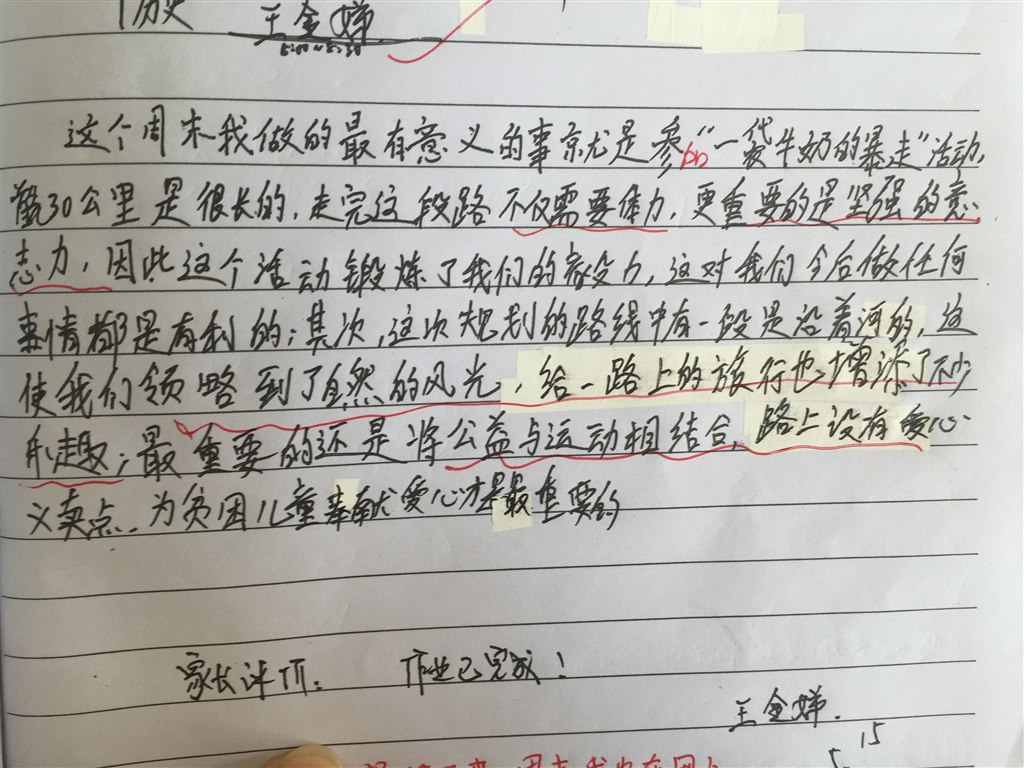 历史 王金娣
5:00~5:30
这个周末我做的最有意义的事就是参加“一袋牛奶的暴走”活动,
30公里是很长的,走完这段路不仅需要体力,更重要的是坚强的意
志力,因此这个活动锻炼了我们的忍受力,这对我们今后做任何
事情都是有利的;其次,这次规划的路线中有一段是沿着河的,这
使我们领略到了自然的风光,给一路上的旅行也增添了不少
乐趣;最重要的还是将公益与运动相结合,路上设有爱心
义卖点,为贫困儿童奉献爱心才是最重要的
家长评价: 作业已完成!
王金娣.
5 15